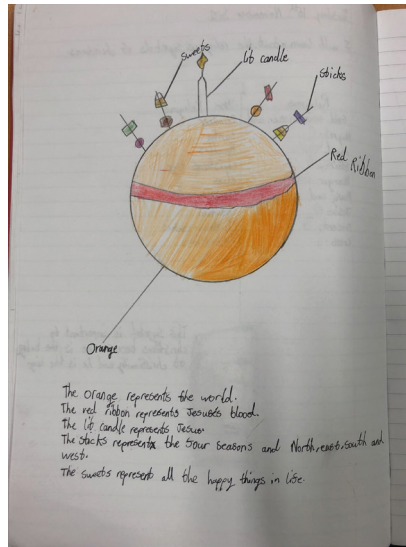 sweets
lit candle
sticks
Red Ribbon
Orange
The orange represents the world.
The red ribbon represents Jesus's blood.
The lit candle represents Jesus.
The sticks represents the four seasons and North, east, south and
west.
The sweets represent all the happy things in life.